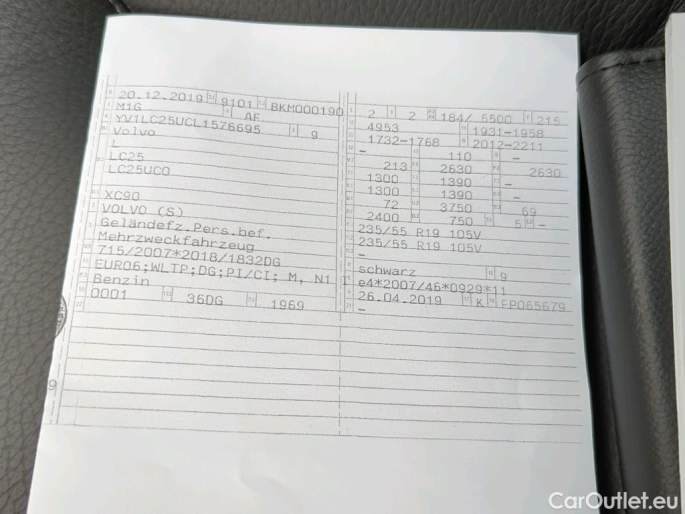 20.12.2019 9101 BKM000190
M1G AF
YV1LC25UCL1576695 9
Volvo
L
LC25
LC25UC0
XC90
VOLVO (S)
Geländefz.Pers.bef.
Mehrzweckfahrzeug
715/2007*2018/1832DG
EURO6;WLTP;DG;PI/CI; M, N1 I
Benzin
0001 36DG 1969
2 2 184/ 5500 215
4953 1931-1958
1732-1768 2012-2211
- 110 -
213 2630 2630
1300 1390 -
1300 1390 -
72 3750 69
2400 750 5 -
235/55 R19 105V
235/55 R19 105V
-
schwarz 9
e4*2007/46*0929*11
26.04.2019 K FP065679
-
9
CarOutlet.eu